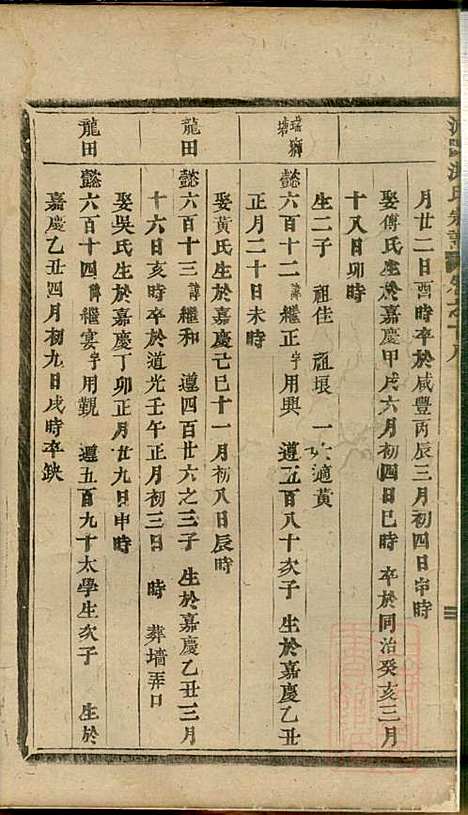 月廿二日酉時卒於咸豐丙辰三月初四日申時
娶傅氏生於嘉慶甲戌六月初四日巳時 卒於同治癸亥三月
十八日卯時
生二子 祖佳 祖垠 一女適黃
懿六百十二諱繼正字用興 遵五百八十次子 生於嘉慶乙丑
正月二十日未時
娶黃氏生於嘉慶己巳十一月初八日辰時
龍田
懿六百十三諱繼和 遵四百廿六之三子 生於嘉慶乙丑三月
十六日亥時卒於道光壬午正月初三日 時 葬墻弄口
娶吳氏生於嘉慶丁卯正月廿九日申時
龍田
懿六百十四諱繼宴字用觀 遵五百九十太學生次子 生於
嘉慶乙丑四月初九日戌時卒缺